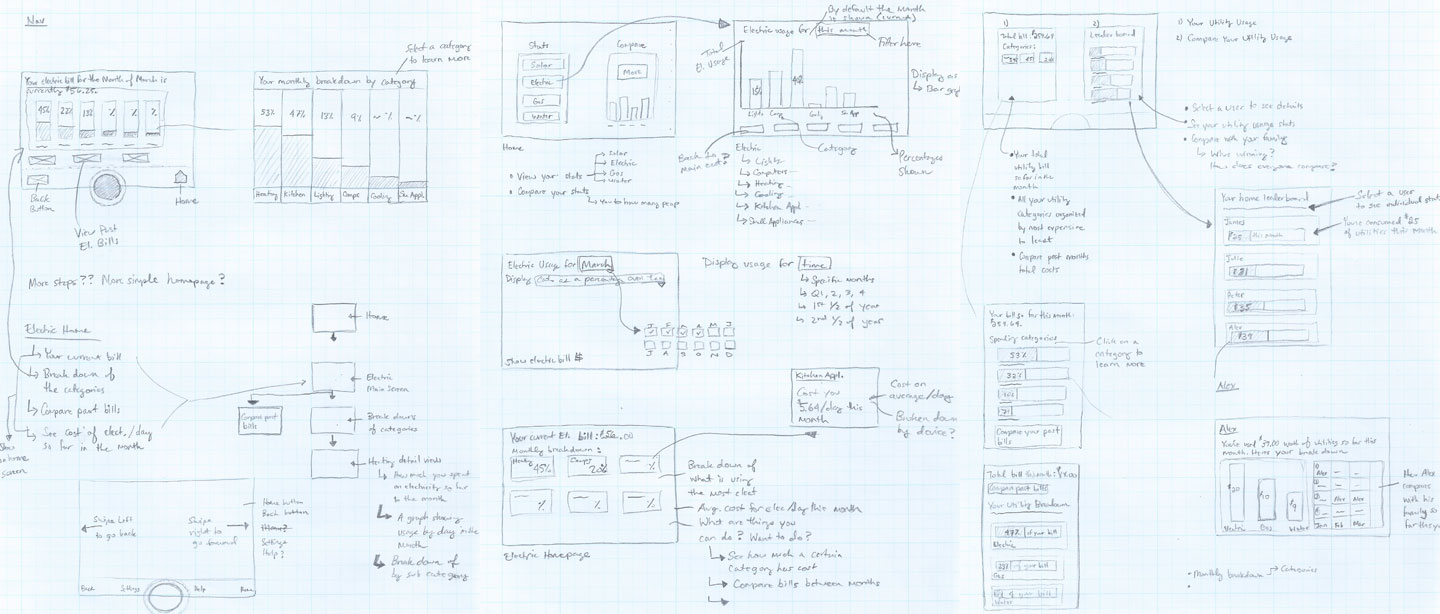 Nav
Select a category
to learn more
Your electric bill for the Month of March is
currently $56.25.
45%
22%
13%
%
%
%
Back
Button
View Past
El. Bills
Home
Your monthly breakdown by category
53%
47%
13%
9%
~ %
~ %
Heating
Kitchen
Lighting
Comps
Cooling
Sm Appl.
More steps?? More simple homepage?
Electric Home
Your current bill
Break down of
the categories
Compare past bills
See cost of elect./day
so far in the month
Home
Electric
Main Screen
Compare past
bills
Break downs
of categories
Heating detail views
How much you spent
on electricity so far
in the month
A graph showing
usage by day in the
month
Break down of
by sub category
Swipe Left
to go back
Swipe
right to
go forward
Home button
Back button
Settings
Help?
Back
Settings
Help
Stats
Solar
Electric
Gas
Water
Compare
More
Home
• View your stats
Solar
Electric
Gas
Water
• Compare your stats
By default the month
is shown (current)
Electric usage for this month
Filter here
Total
El. Usage
15%
Lights
Comp
Sm App
Display as
Bar graph
Back to
Category
Percentages
Shown
Electric
Lights
Computers
Heating
Cooling
Kitchen Appl
Small Appliances
Electric Usage for March
Display
J F M A M J
J A S O N D
Show electric bill $
Display usage for time
Specific months
Q1, 2, 3, 4
1st 1/2 of year
2nd 1/2 of year
Kitchen Appl.
Cost you
5.64/day this
month
Cost on
average/day
Broken down
by device?
Your current El. bill:
Monthly breakdown:
Heating
45%
Comps
20%
%
%
%
%
Electric Homepage
Break down of
What is using
the most elect
Avg. cost for elec/day this month
What are things you
can do? Want to do?
See how much a certain
Category has cost
Compare bills between months
1)
Total bill
Categories
2)
Leader board
1) Your Utility Usage
2) Compare Your Utility Usage
• Select a user to see details
• See your utility usage stats
• Compare with your family
Who's winning?
How does everyone compare?
• Your total
utility bill
so far in the
month
• All your utility
categories organized
by most expensive
to least
• Compare past months
total costs
Your home leaderboard
James
$25 this month
Julie
$31
Peter
$35
Alex
$39
Select a user
to see individual stats
You've consumed $25
of utilities this month
Your bill so far this month:
Spending categories
53%
32%
Compare your past
bills
Click on a
category to
learn more
Total bill this month:
Compare past bills
Your Utility Breakdown
47% of your bill
Electric
of your bill
Gas
of your bill
Water
Alex
Alex
You've used $39.00 worth of utilities so far this
month. Heres your break down
$20
$10
$9
Electric
Gas
Water
Alex
Alex
Alex
Jan
Feb
Mar
How Alex
compares
with his
family so
far this year
- Monthly breakdown → Categories